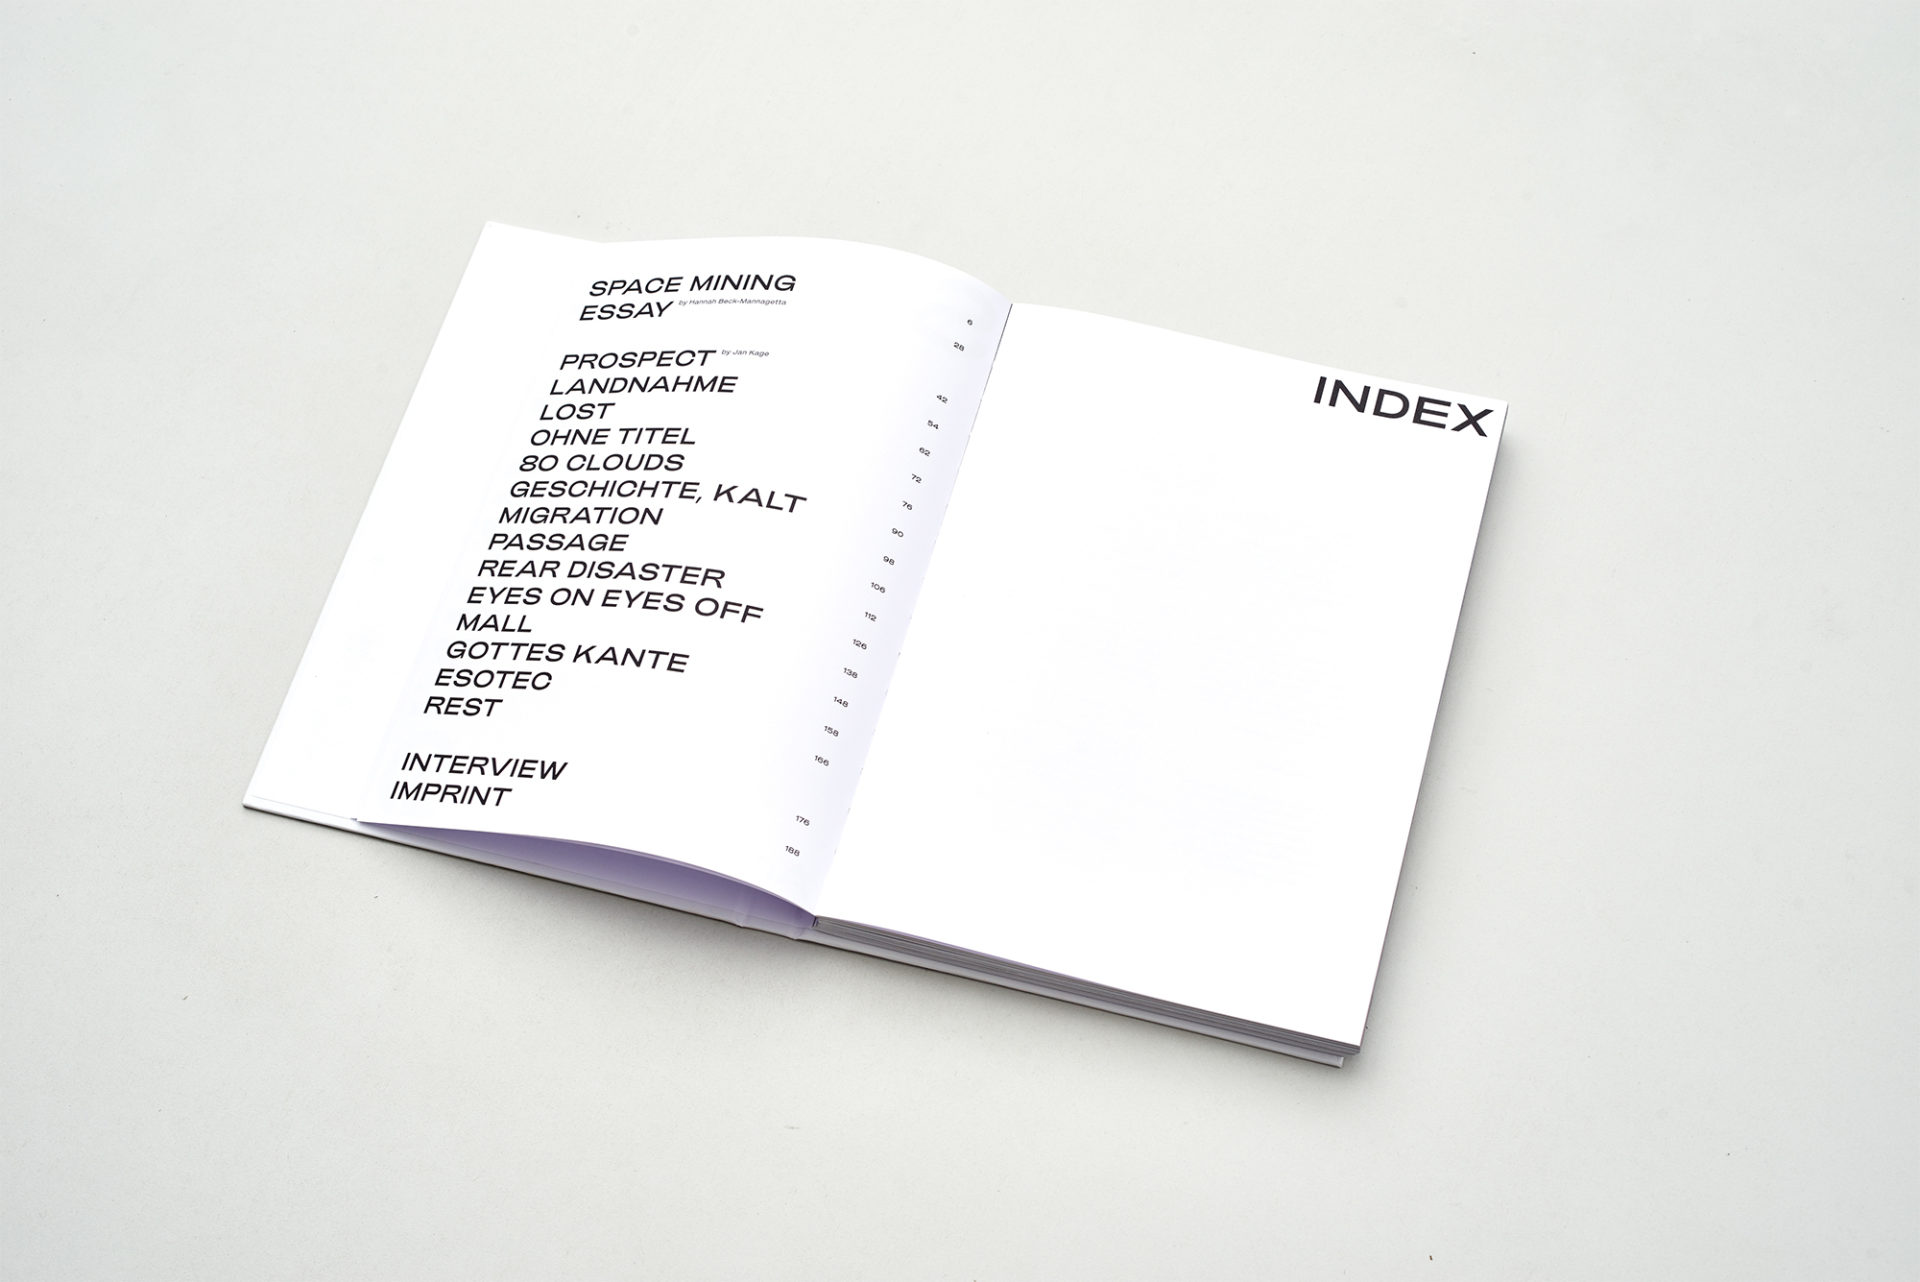 SPACE MINING 6
ESSAY by Hannah Beck-Mannagetta 28
PROSPECT by Jan Kage 42
LANDNAHME 54
LOST 62
OHNE TITEL 72
80 CLOUDS 76
GESCHICHTE, KALT 90
MIGRATION 98
PASSAGE 106
REAR DISASTER 112
EYES ON EYES OFF 126
MALL 138
GOTTES KANTE 148
ESOTEC 158
REST 166
INTERVIEW 176
IMPRINT 188
INDEX